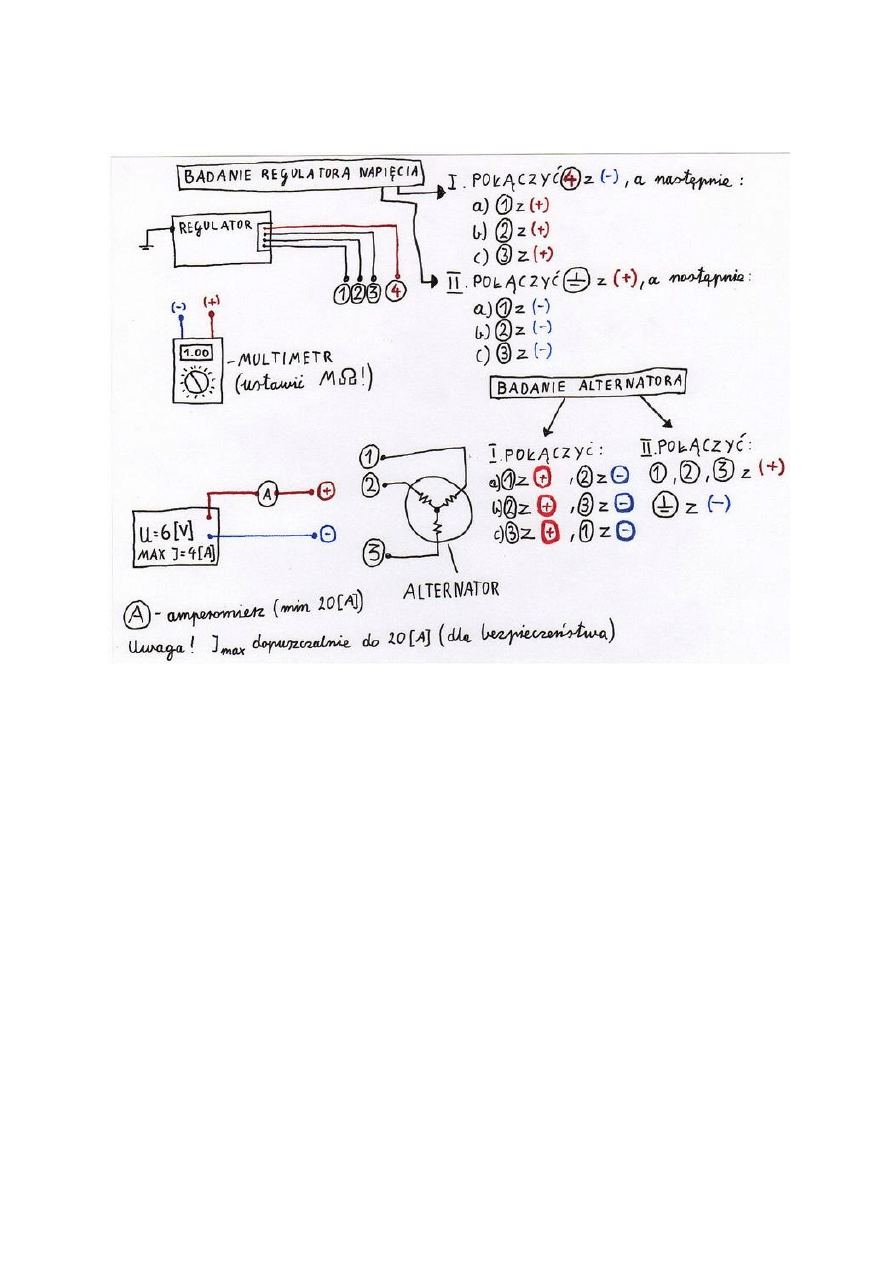 BADANIE REGULATORA NAPIĘCIA
I. POŁĄCZYĆ ④ z (-), a następnie:
a) ① z (+)
b) ② z (+)
c) ③ z (+)
REGULATOR
① ② ③ ④
II. POŁĄCZYĆ ⏚ z (+), a następnie:
a) ① z (-)
b) ② z (-)
c) ③ z (-)
(-) (+)
1.00
- MULTIMETR
(ustawić MΩ!)
BADANIE ALTERNATORA
I. POŁĄCZYĆ:
a) ① z + , ② z -
b) ② z + , ③ z -
c) ③ z + , ① z -
II. POŁĄCZYĆ:
①, ②, ③ z (+)
⏚ z (-)
A +
-
U=6[V]
MAX I=4[A]
①
②
③
ALTERNATOR
Ⓐ - amperomierz (min 20[A])
Uwaga! Imax dopuszczalnie do 20[A] (dla bezpieczeństwa)